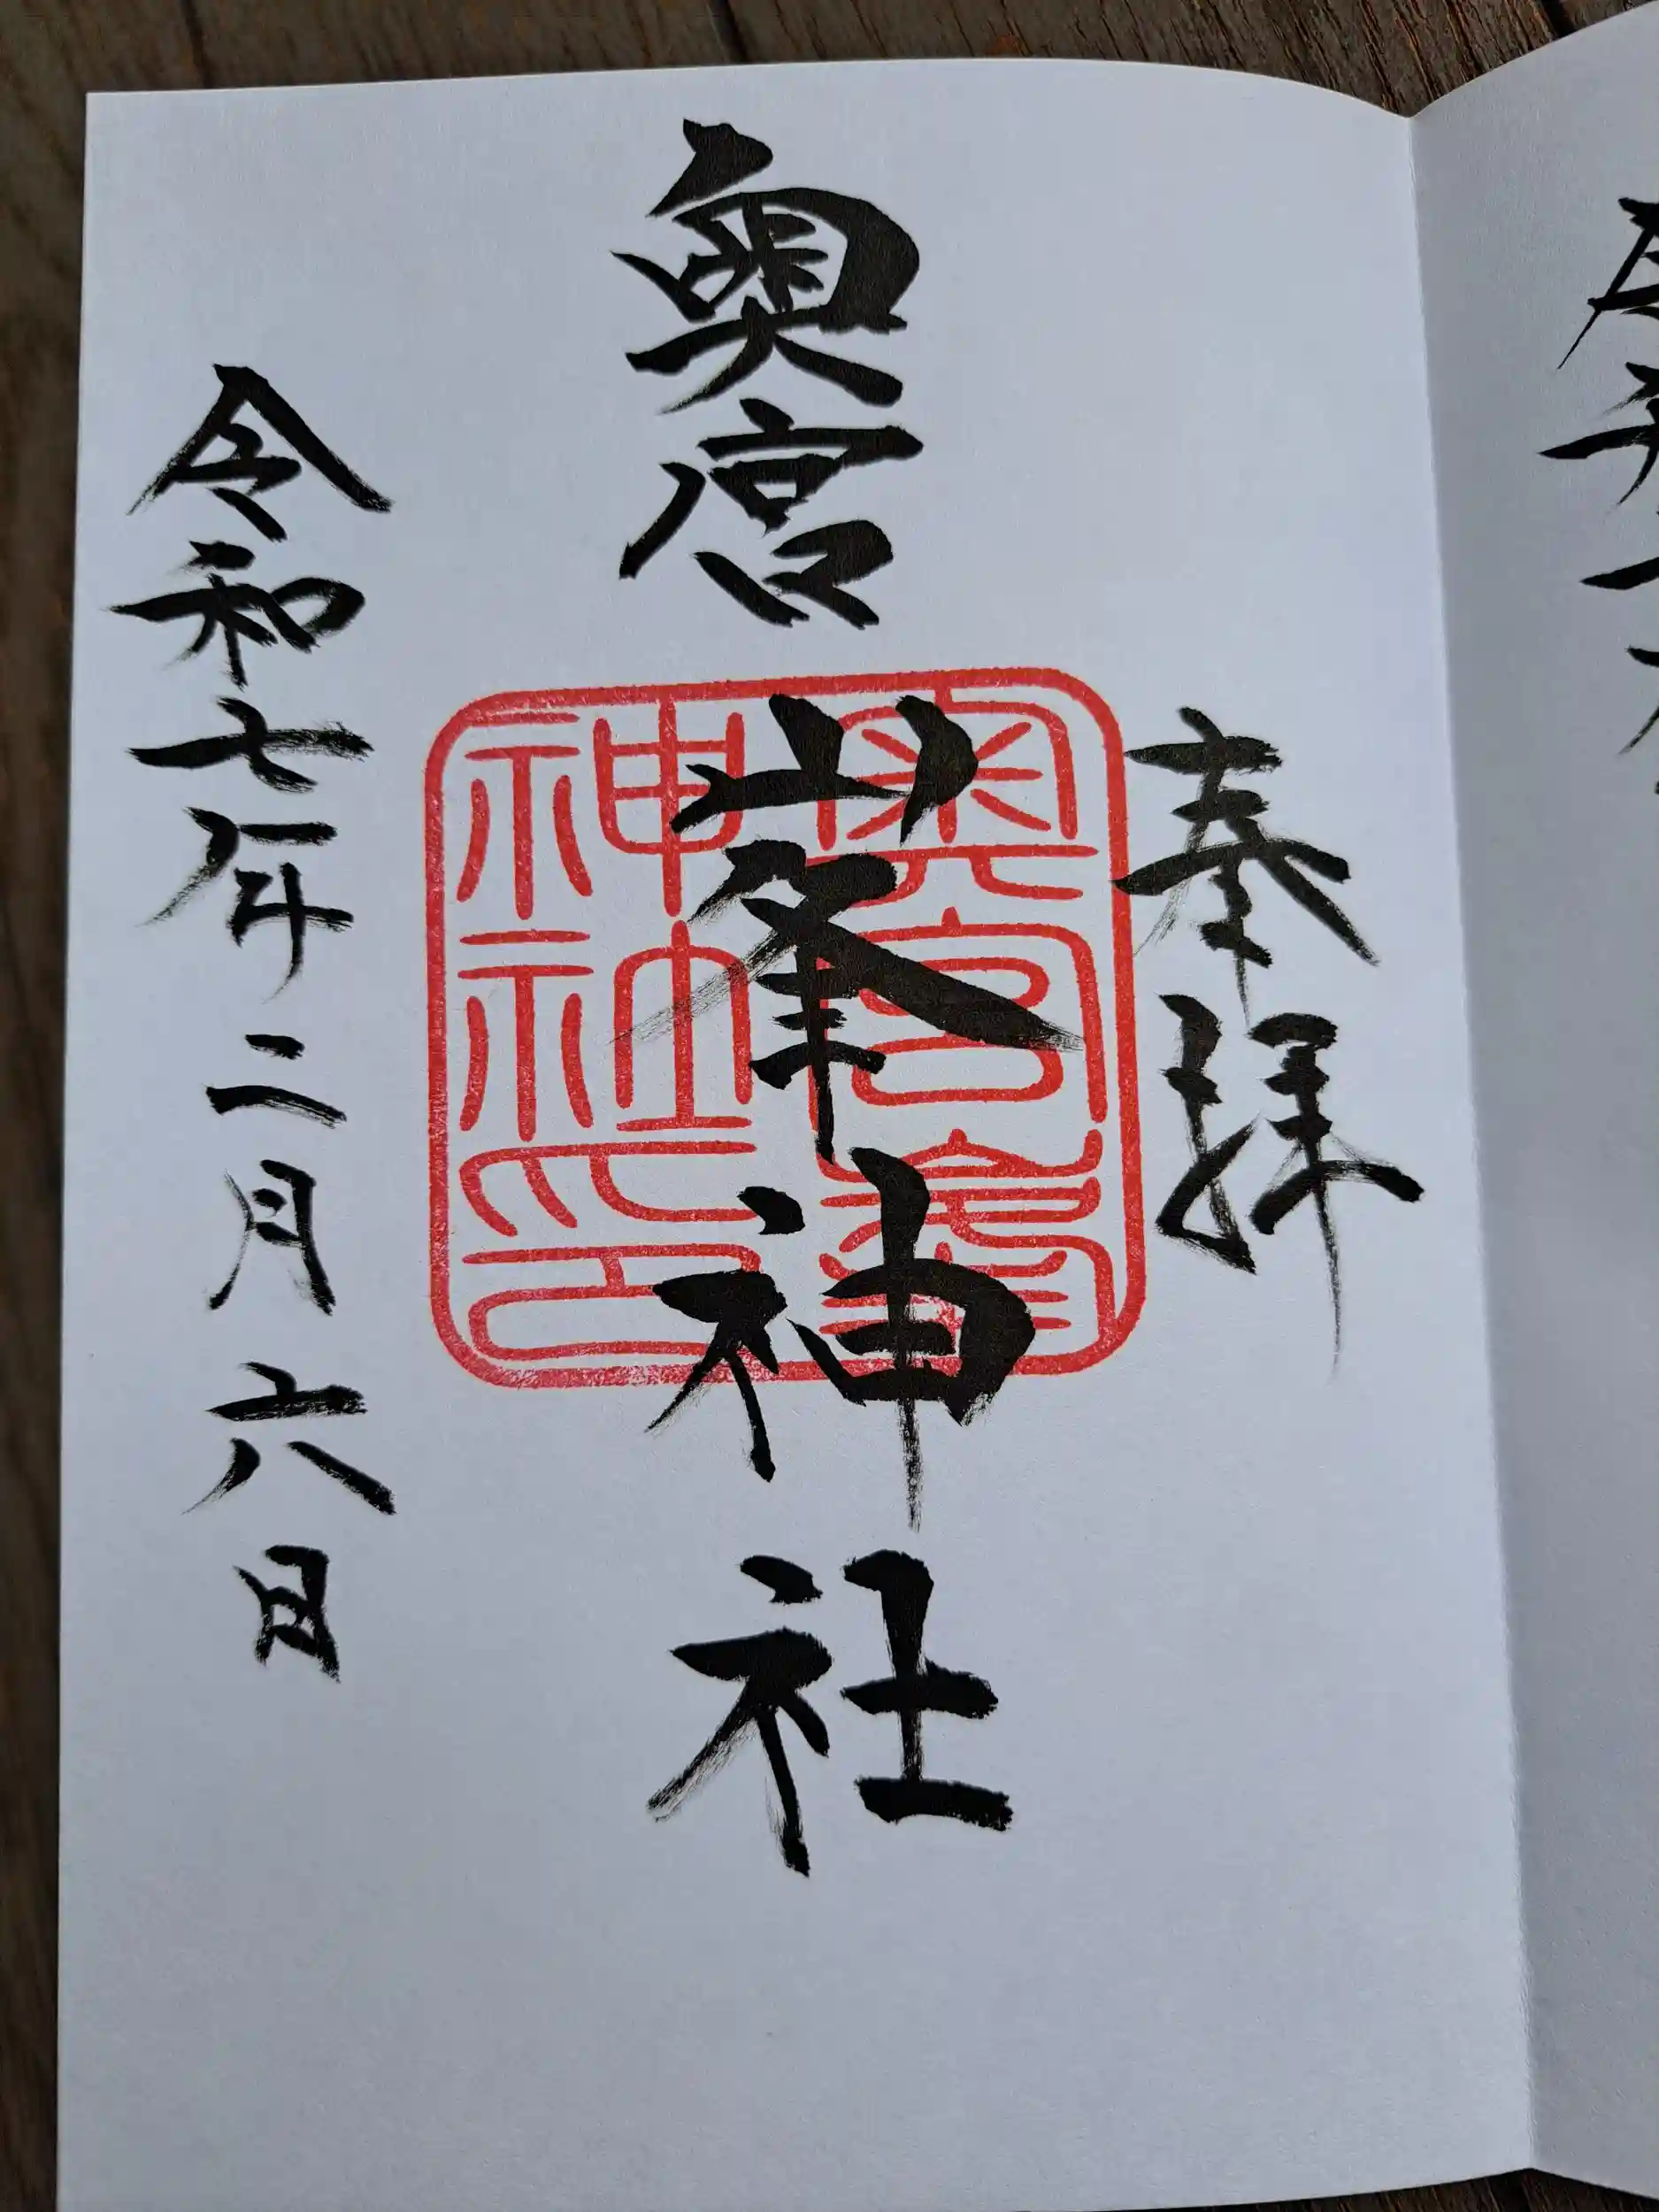 奉拝
奥宮
峯神社
奥宮峯
神社印
令和七年二月六日